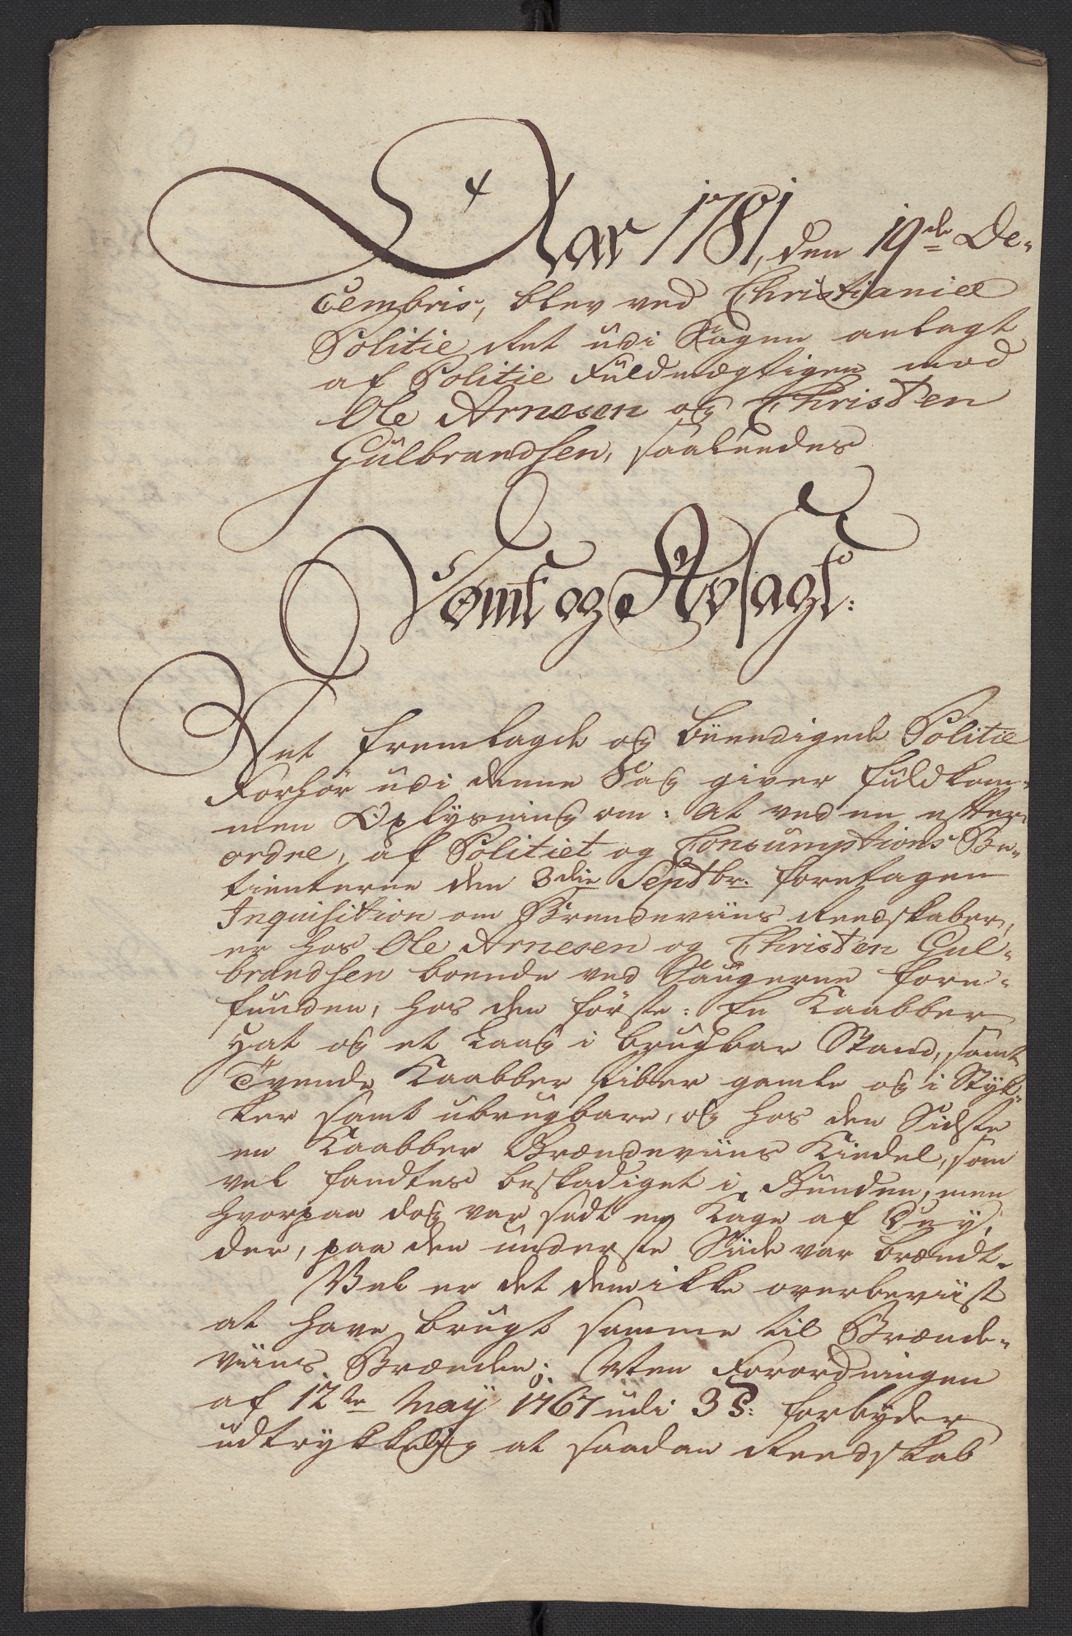 Aar 1781, den 19de De-
cembris, blev ved Christianiæ
Politie Ret udi Sagen anlagt
af Politie Fuldmægtigen mod
Ole Arnesen og Christen
Gulbrandsen, saaledes
Dømt og Afsagt:
Det fremlagde og beendigede Politie
Forhör udi denne Sag giver fuldkom-
men Oplysning om: At ved en efter
ordre, af Politiet og Consumptions Be-
tienterne den 3die Septbr. foretagen
Inquisition om Brendeviins Reedskaber,
er hos Ole Arnesen og Christen Gul-
brandsen boende ved Saugerne fore-
funden, hos den förste: En Kaabber
Hat og et Laag i brugbar Stand, samt
Tvende Kaabber Piber gamle og i Styk-
ker samt ubrugbare, og hos den Sidste
en Kaabber Brændeviins Kiedel, som
vel fandtes beskadiget i Bunden, men
hvorpaa dog var sadt en Kage af
der, paa den underste Siide var brændt.
Vel er det dem ikke overbeviist
at have brugt samme til Brænde-
viins Brænden; Men Forordningen
af 12te May 1767 udi 3 §: forbyder
udtrykkelig at saadan Reedskab